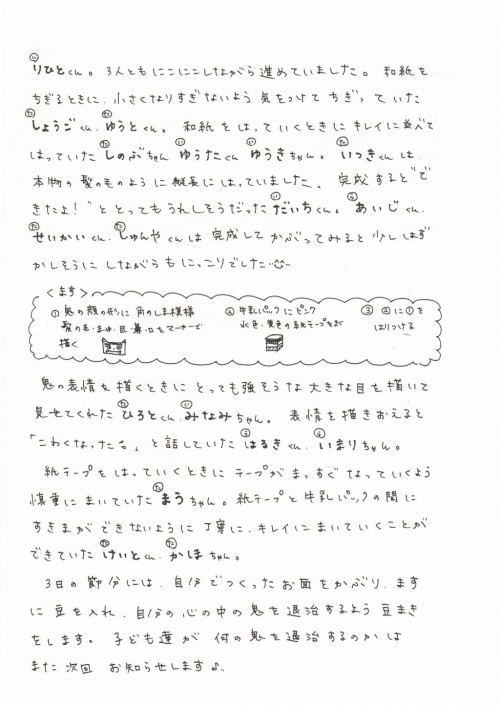 りひとくん。3人ともにこにこしながら進めていました。和紙を
ちぎるときに、小さくなりすぎないよう気をつけてちぎっていた
しょうごくん、ゆうとくん。和紙をはっていくときにキレイに並べて
はっていたしのぶちゃん、ゆうたくん、ゆうきちゃん。いつきくんは、
本物の髪の毛のように縦長にはっていました。完成すると"で
きたよ!"ととってもうれしそうだっただいちくん。あいじくん、
せいかいくん、しゅんやくんは完成してかぶってみると少しはず
かしそうにしながらもにっこりでした
<ます>
① 鬼の顔の形に角のしま模様
髪の毛・まゆ・目・鼻・口をマーカーで
描く
② 牛乳パックにピンク
水色・黄色の紙テープをまく
③ ②に①を
はりつける
鬼の表情を描くときにとっても強そうな大きな目を描いて
見せてくれたひろとくん、みなみちゃん。表情を描きおえると
「こわくなったな」と話していたはるきくん、いまりちゃん。
紙テープをはっていくときにテープがまっすぐなっていくよう
慎重にまいていたまうちゃん。紙テープと牛乳パックの間に
すきまができないように丁寧に、キレイにまいていくことが
できていたけいとくん、かほちゃん。
3日の節分には、自分でつくったお面をかぶり、ます
に豆を入れ、自分の心の中の鬼を退治するよう豆まき
をします。子ども達が何の鬼を退治するのかは
また次回お知らせします♪